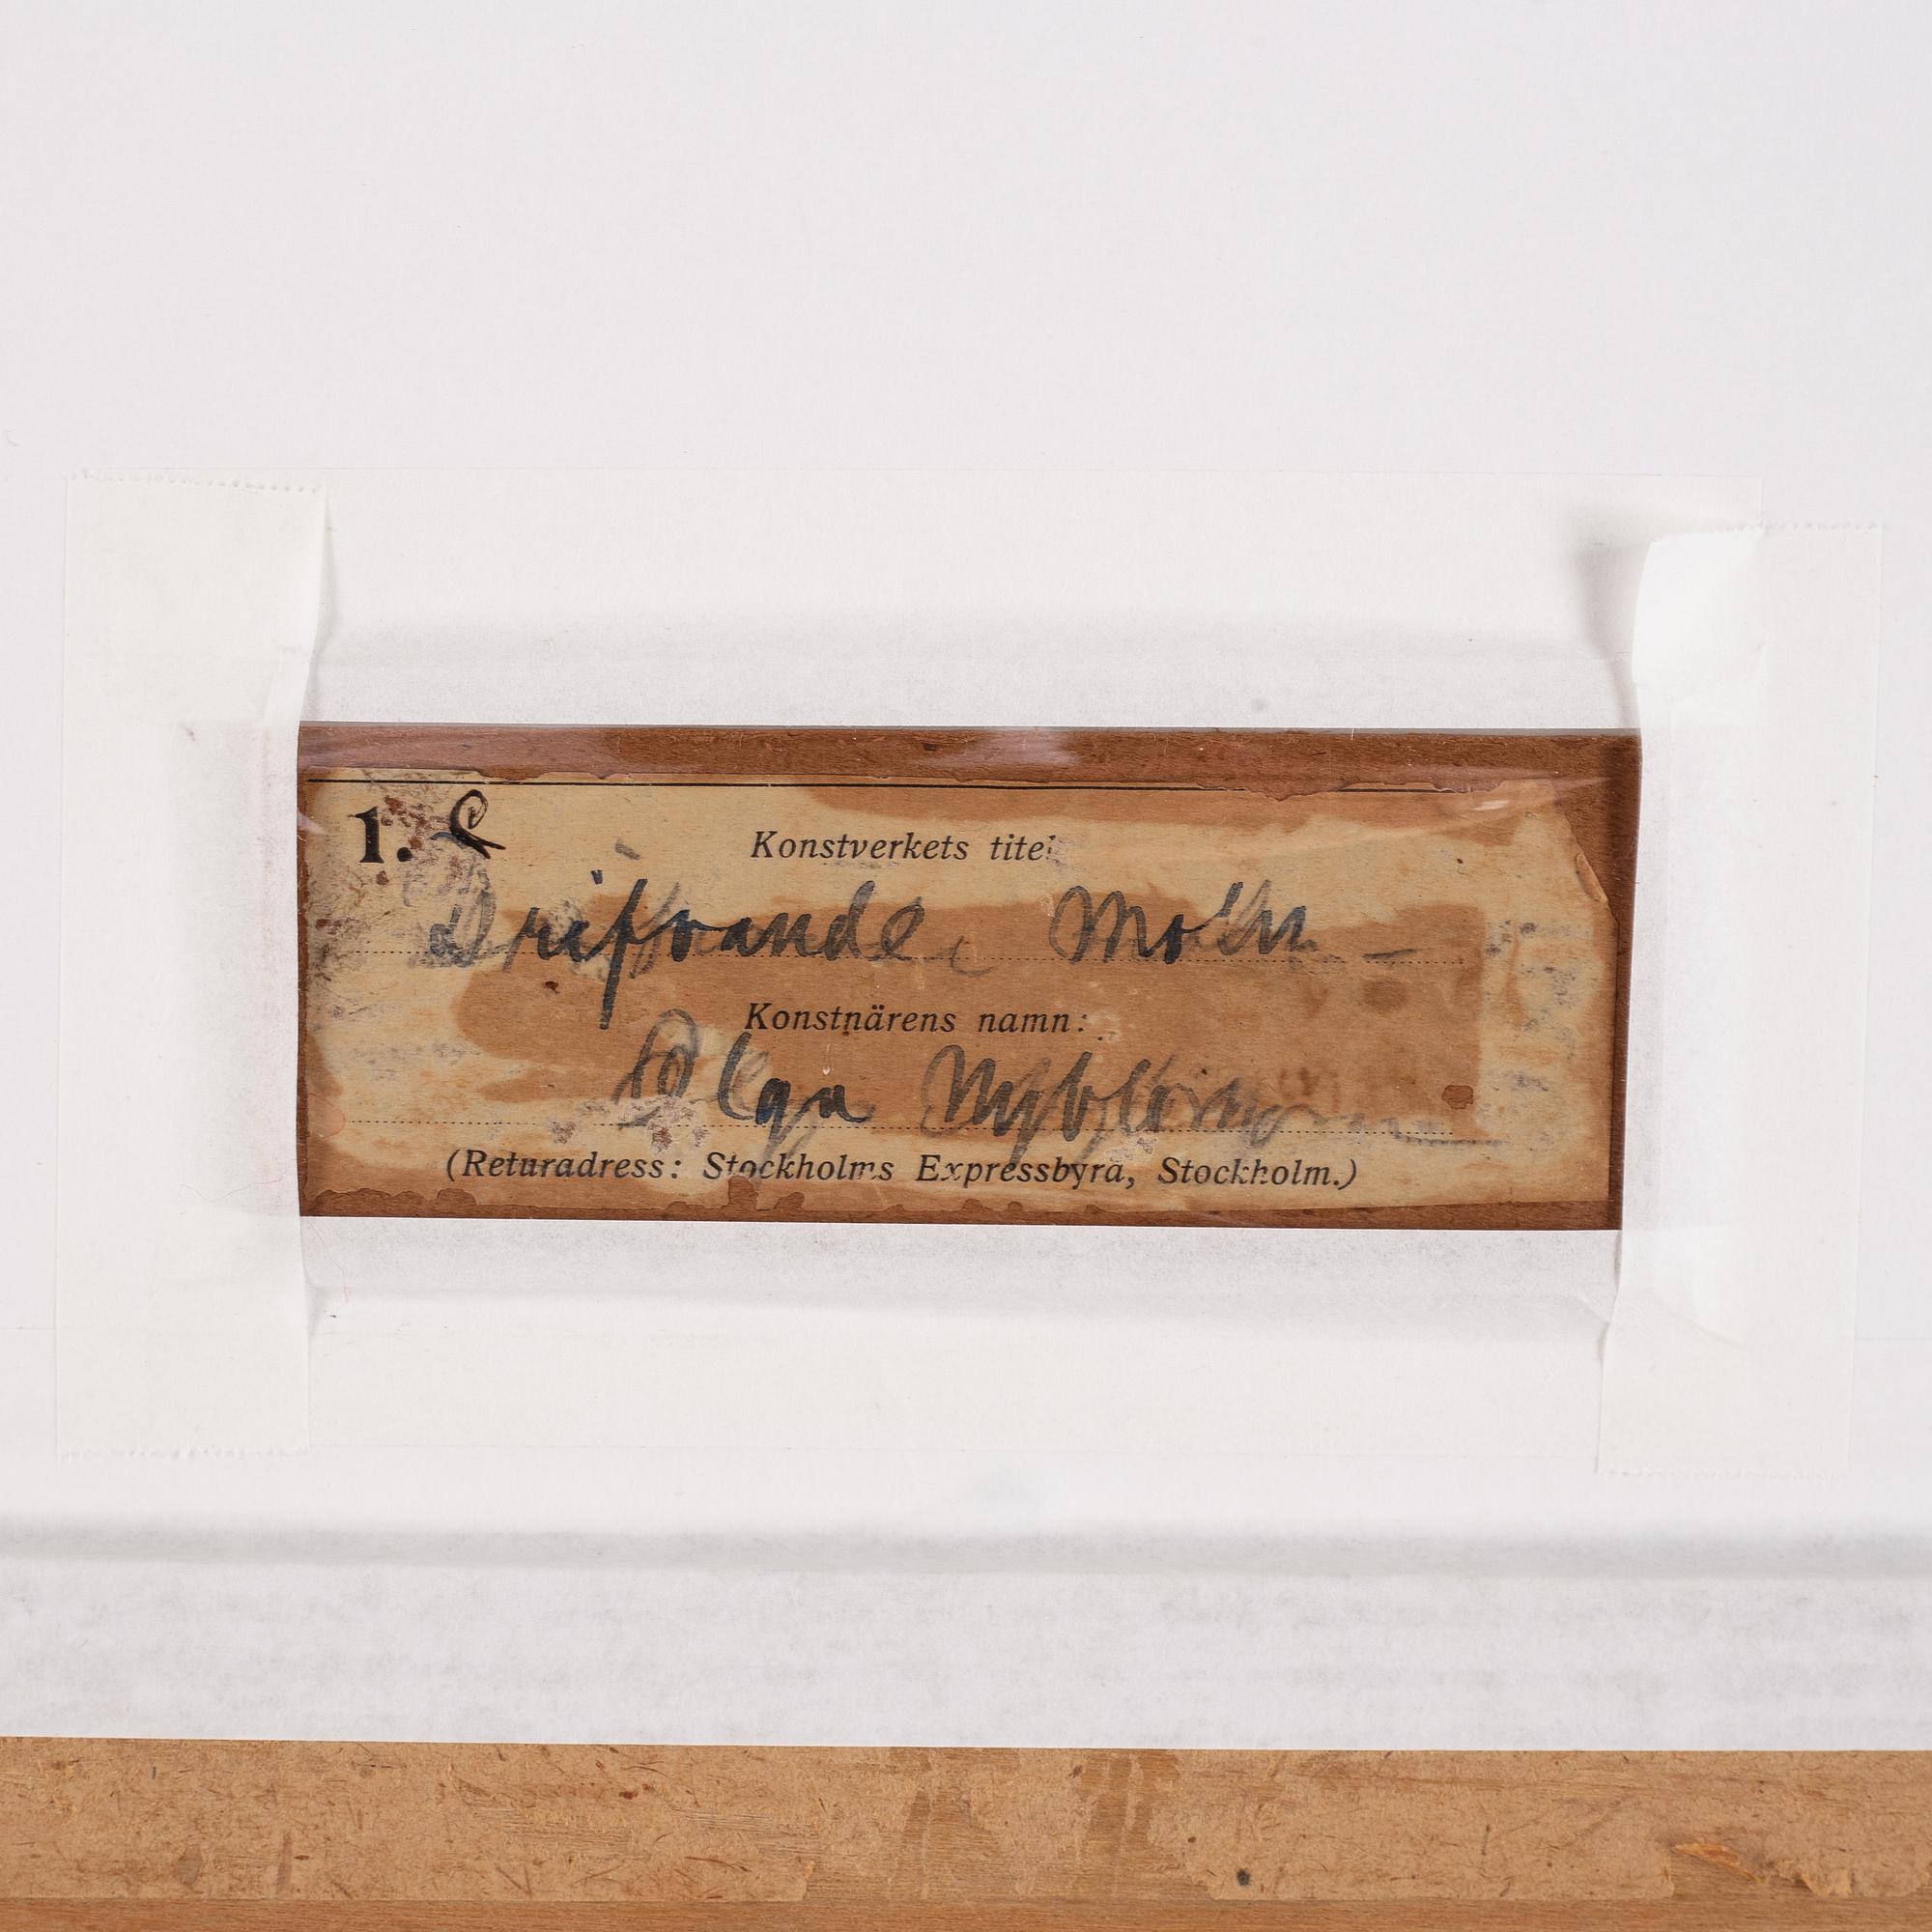 1.
Konstverkets titel
Drifvande Moln
Konstnärens namn:
Olga Nyblom
(Returadress: Stockholms Expressbyrå, Stockholm.)